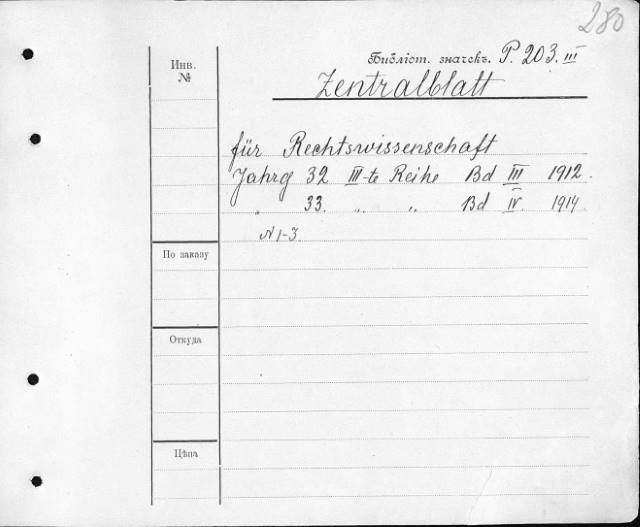 280
Инв.
№
Библіот. значекъ. P. 203. III
Zentralblatt
für Rechtswissenschaft
Jahrg 32 III-te Reihe Bd III 1912.
„ 33. „ „ Bd IV. 1914
N 1-3.
По заказу
Откуда
Цѣна